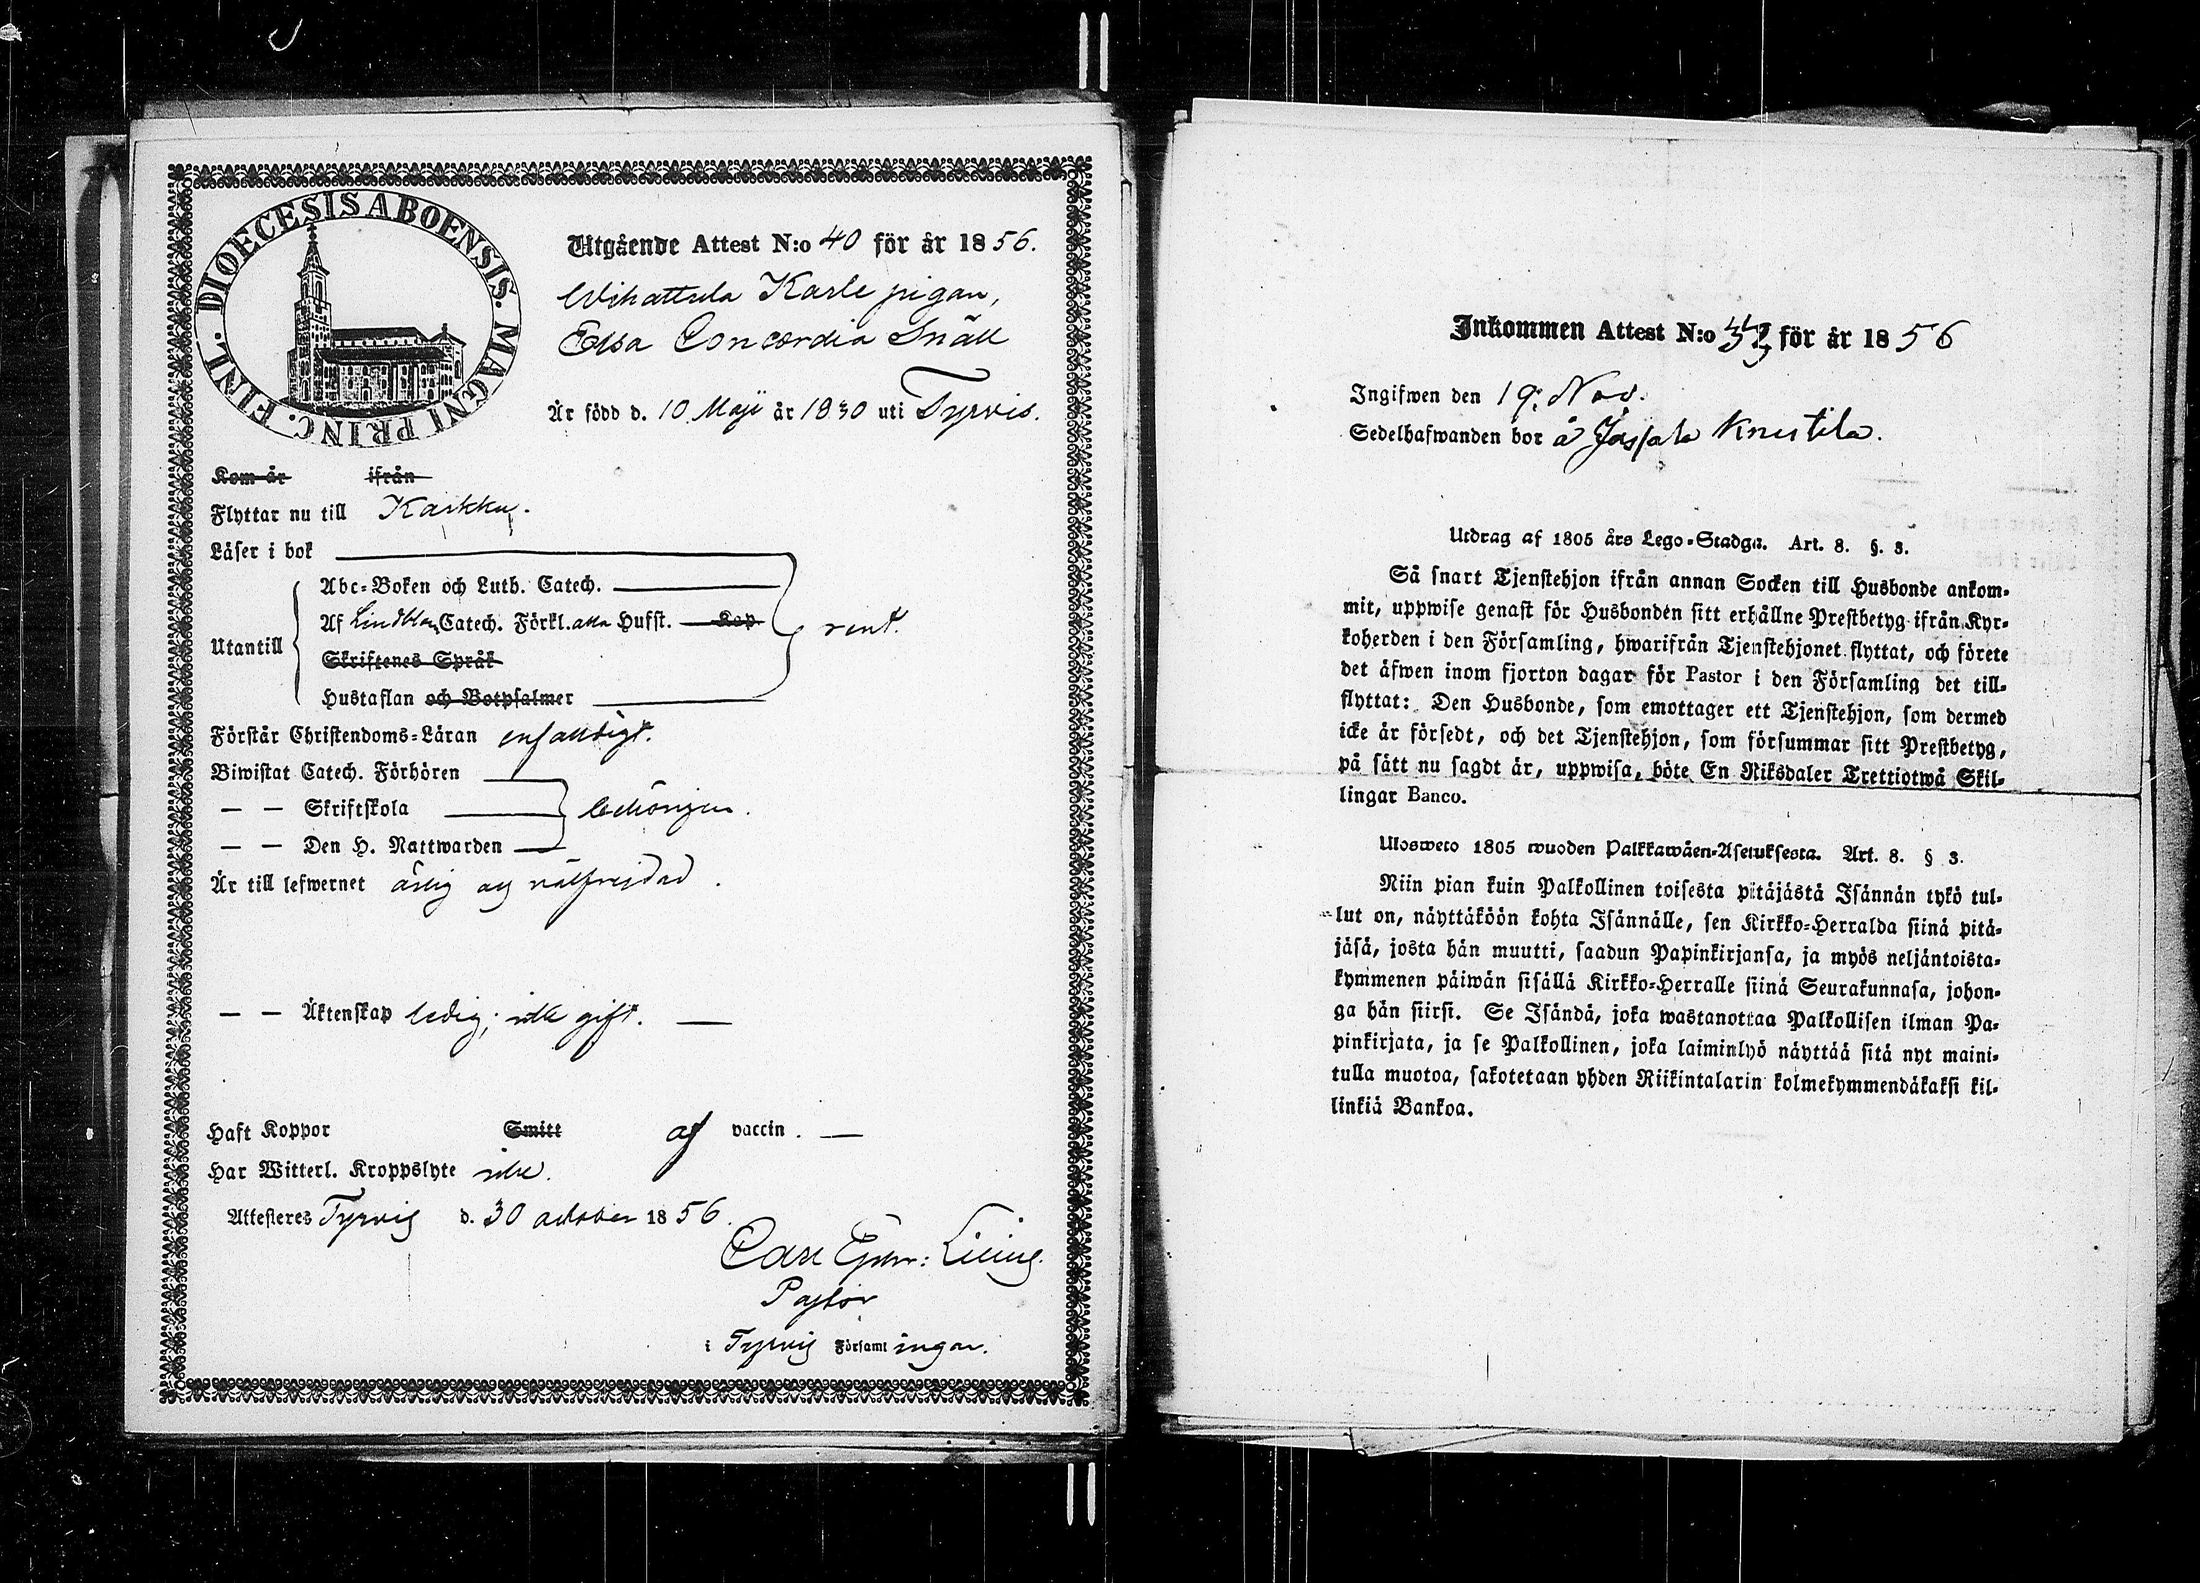 DIOECESIS ABOENSIS. MAGNI PRINC. FINL.
Utgående Attest N:o 40 för år 1856.
Wihattula Karle pigan,
Elsa Concordia Snäll
Är född d. 10 Maji är 1830 uti Tyrvis.
Kom år ifrån
Flyttar nu till Karkku.
Läser i bok
Abc-Boken och Luth. Catech.
Af Lindbloms Catech. Förkl. alla Hufst. Kap
rent.
Utantill
Skriftenes Språk
Hustaflan och Botpsalmer
Förstår Christendoms-Läran enfaldigt.
Biwistat Catech. Förhören
— — Skriftskola behörigen.
— — Den H. Nattwarden
Är till lefwernet ärlig och välfrejdad.
— — Äktenskap ledig; icke gift. —
Haft Koppor Smitt af vaccin. —
Har Witterl. Kroppslyte icke.
Attesteres Tyrvis d. 30 october 1856.
Carl
Pastor
i Tyrvis Församlingar.
Inkommen Attest N:o för år 1856
Ingifwen den 19. Nov.
Sedelhafwanden bor å Knuutila.
Utdrag af 1805 års Lego-Stadga. Art. 8. §. 3.
Så snart Tjenstehjon ifrån annan Socken till Husbonde ankom-
mit, uppwise genast för Husbonden sitt erhållne Prestbetyg ifrån Kyr-
koherden i den Församling, hwarifrån Tjenstehjonet flyttat, och förete
det äfwen inom fjorton dagar för Pastor i den Församling det till-
flyttat: Den Husbonde, som emottager ett Tjenstehjon, som dermed
icke är försedt, och det Tjenstehjon, som försummar sitt Prestbetyg,
på sätt nu sagdt är, uppwisa, böte En Riksdaler Trettiotwå Skil-
lingar Banco.
Ulosweto 1805 wuoden Palkkawäen-Asetuksesta. Art. 8. § 3.
Niin pian kuin Palkollinen toisesta pitäjästä Isännän tykö tul-
lut on, näyttäköön kohta Isännälle, sen Kirkko-Herralda siinä pitä-
jäsä, josta hän muutti, saadun Papinkirjansa, ja myös neljäntoista-
kymmenen päiwän sisällä Kirkko-Herralle siinä Seurakunnasa, johon-
ga hän siirsi. Se Isändä, joka wastanottaa Palkollisen ilman Pa-
pinkirjata, ja se Palkollinen, joka laiminlyö näyttää sitä nyt maini-
tulla muotoa, sakotetaan yhden Riikintalarin kolmekymmendäkaksi kil-
linkiä Bankoa.